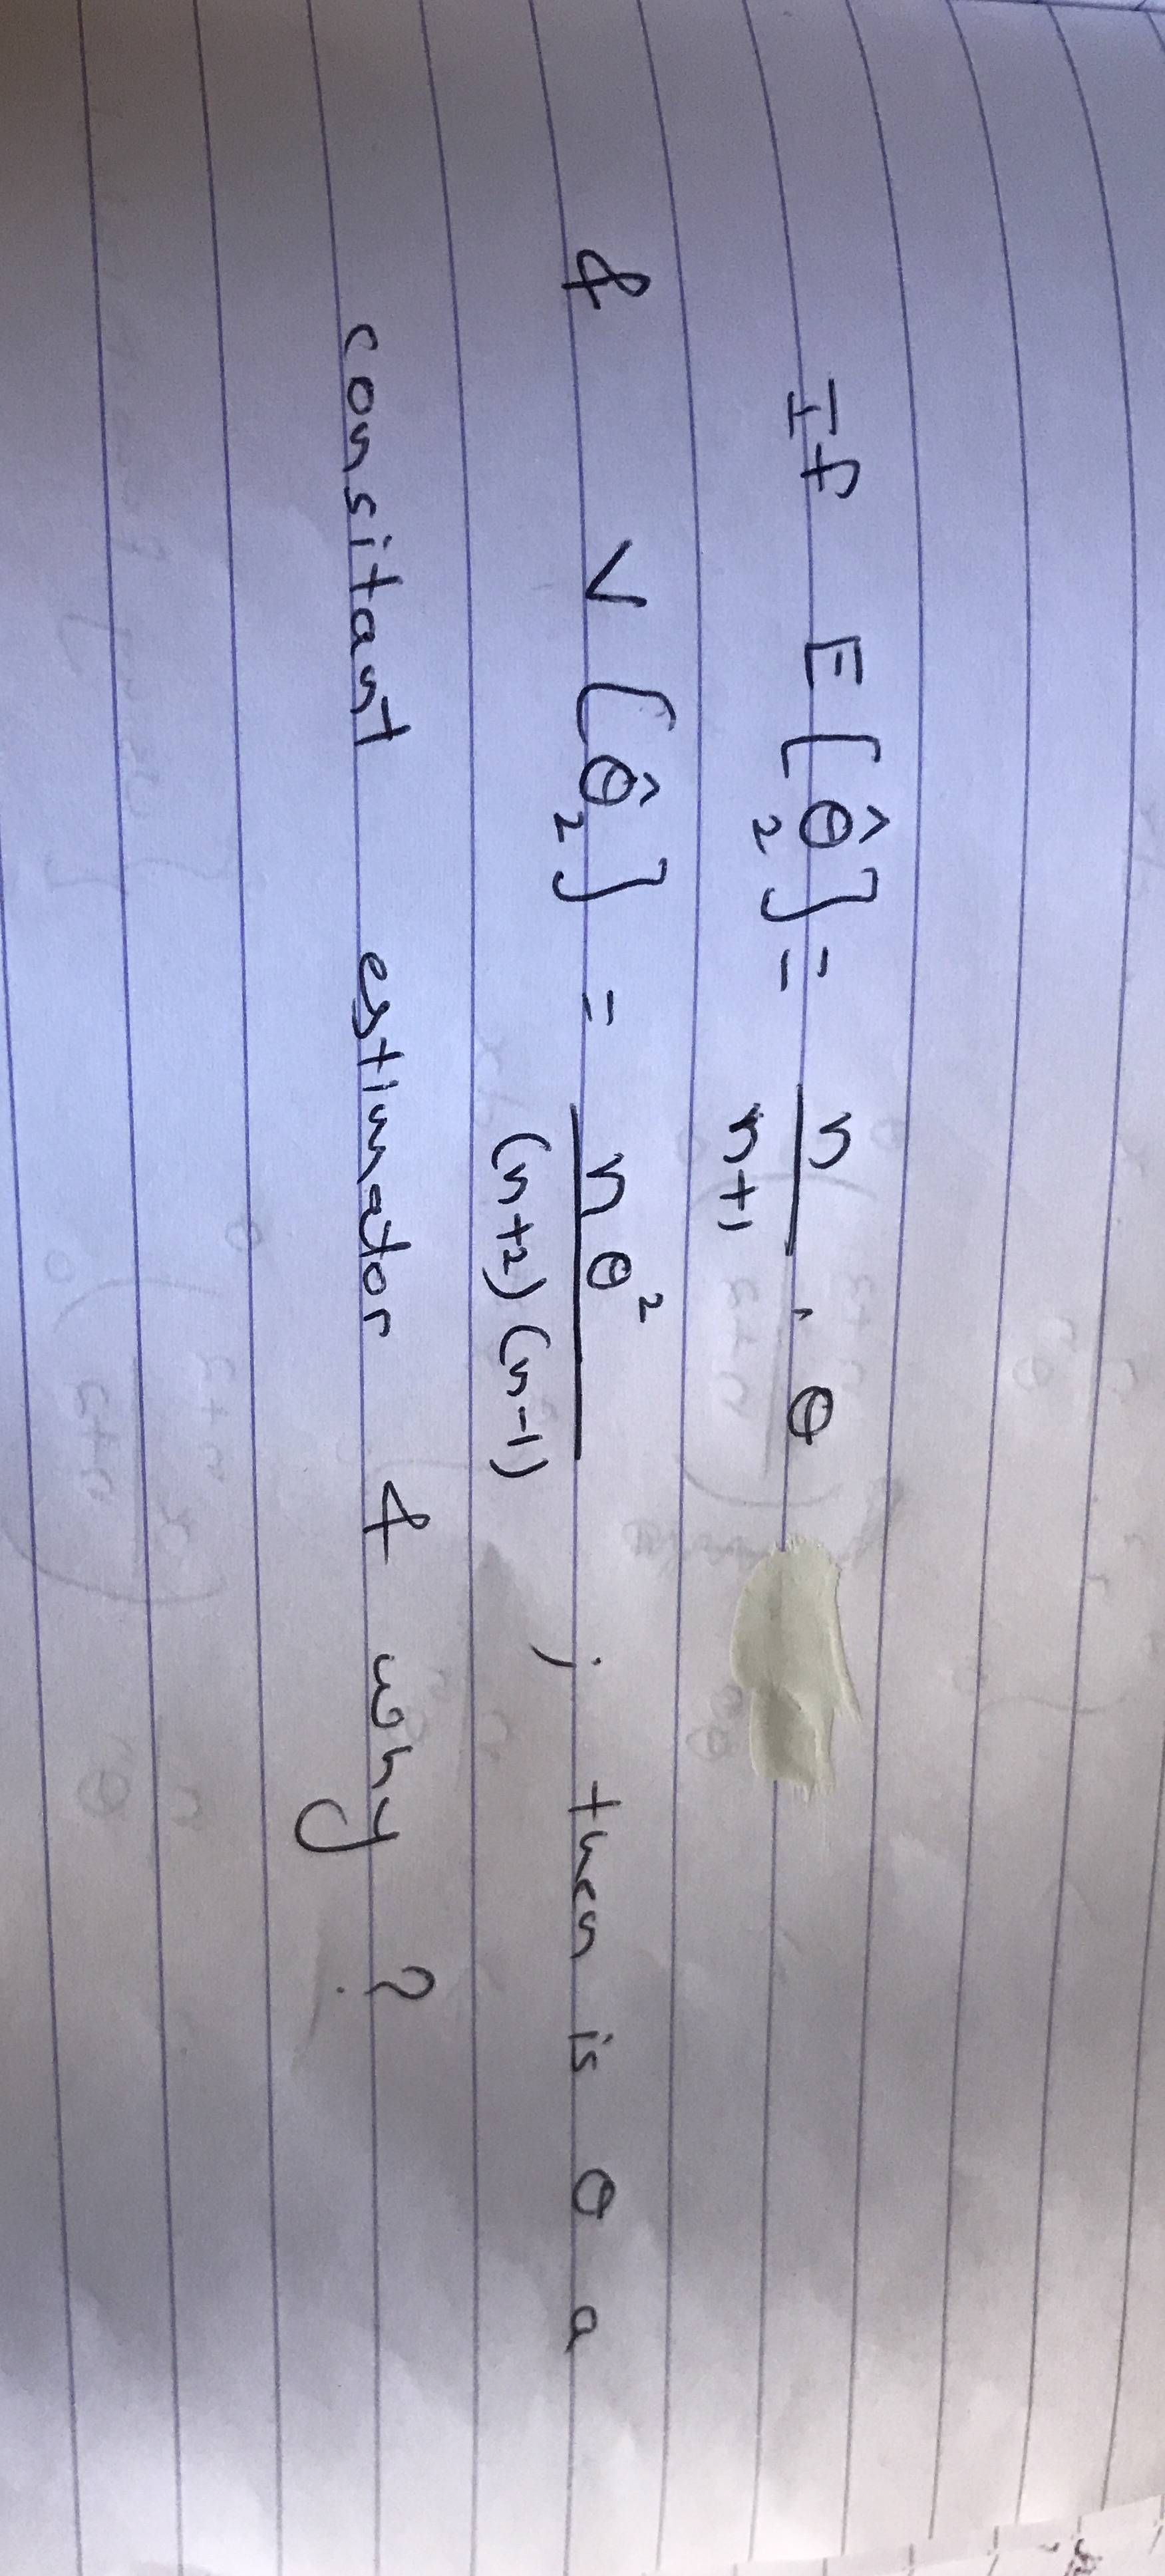 If E[θ̂₂] = n/(n+1) · θ
& V[θ̂₂] = nθ²/((n+2)(n-1)) ; then is θ a
consitant estimator & why ?